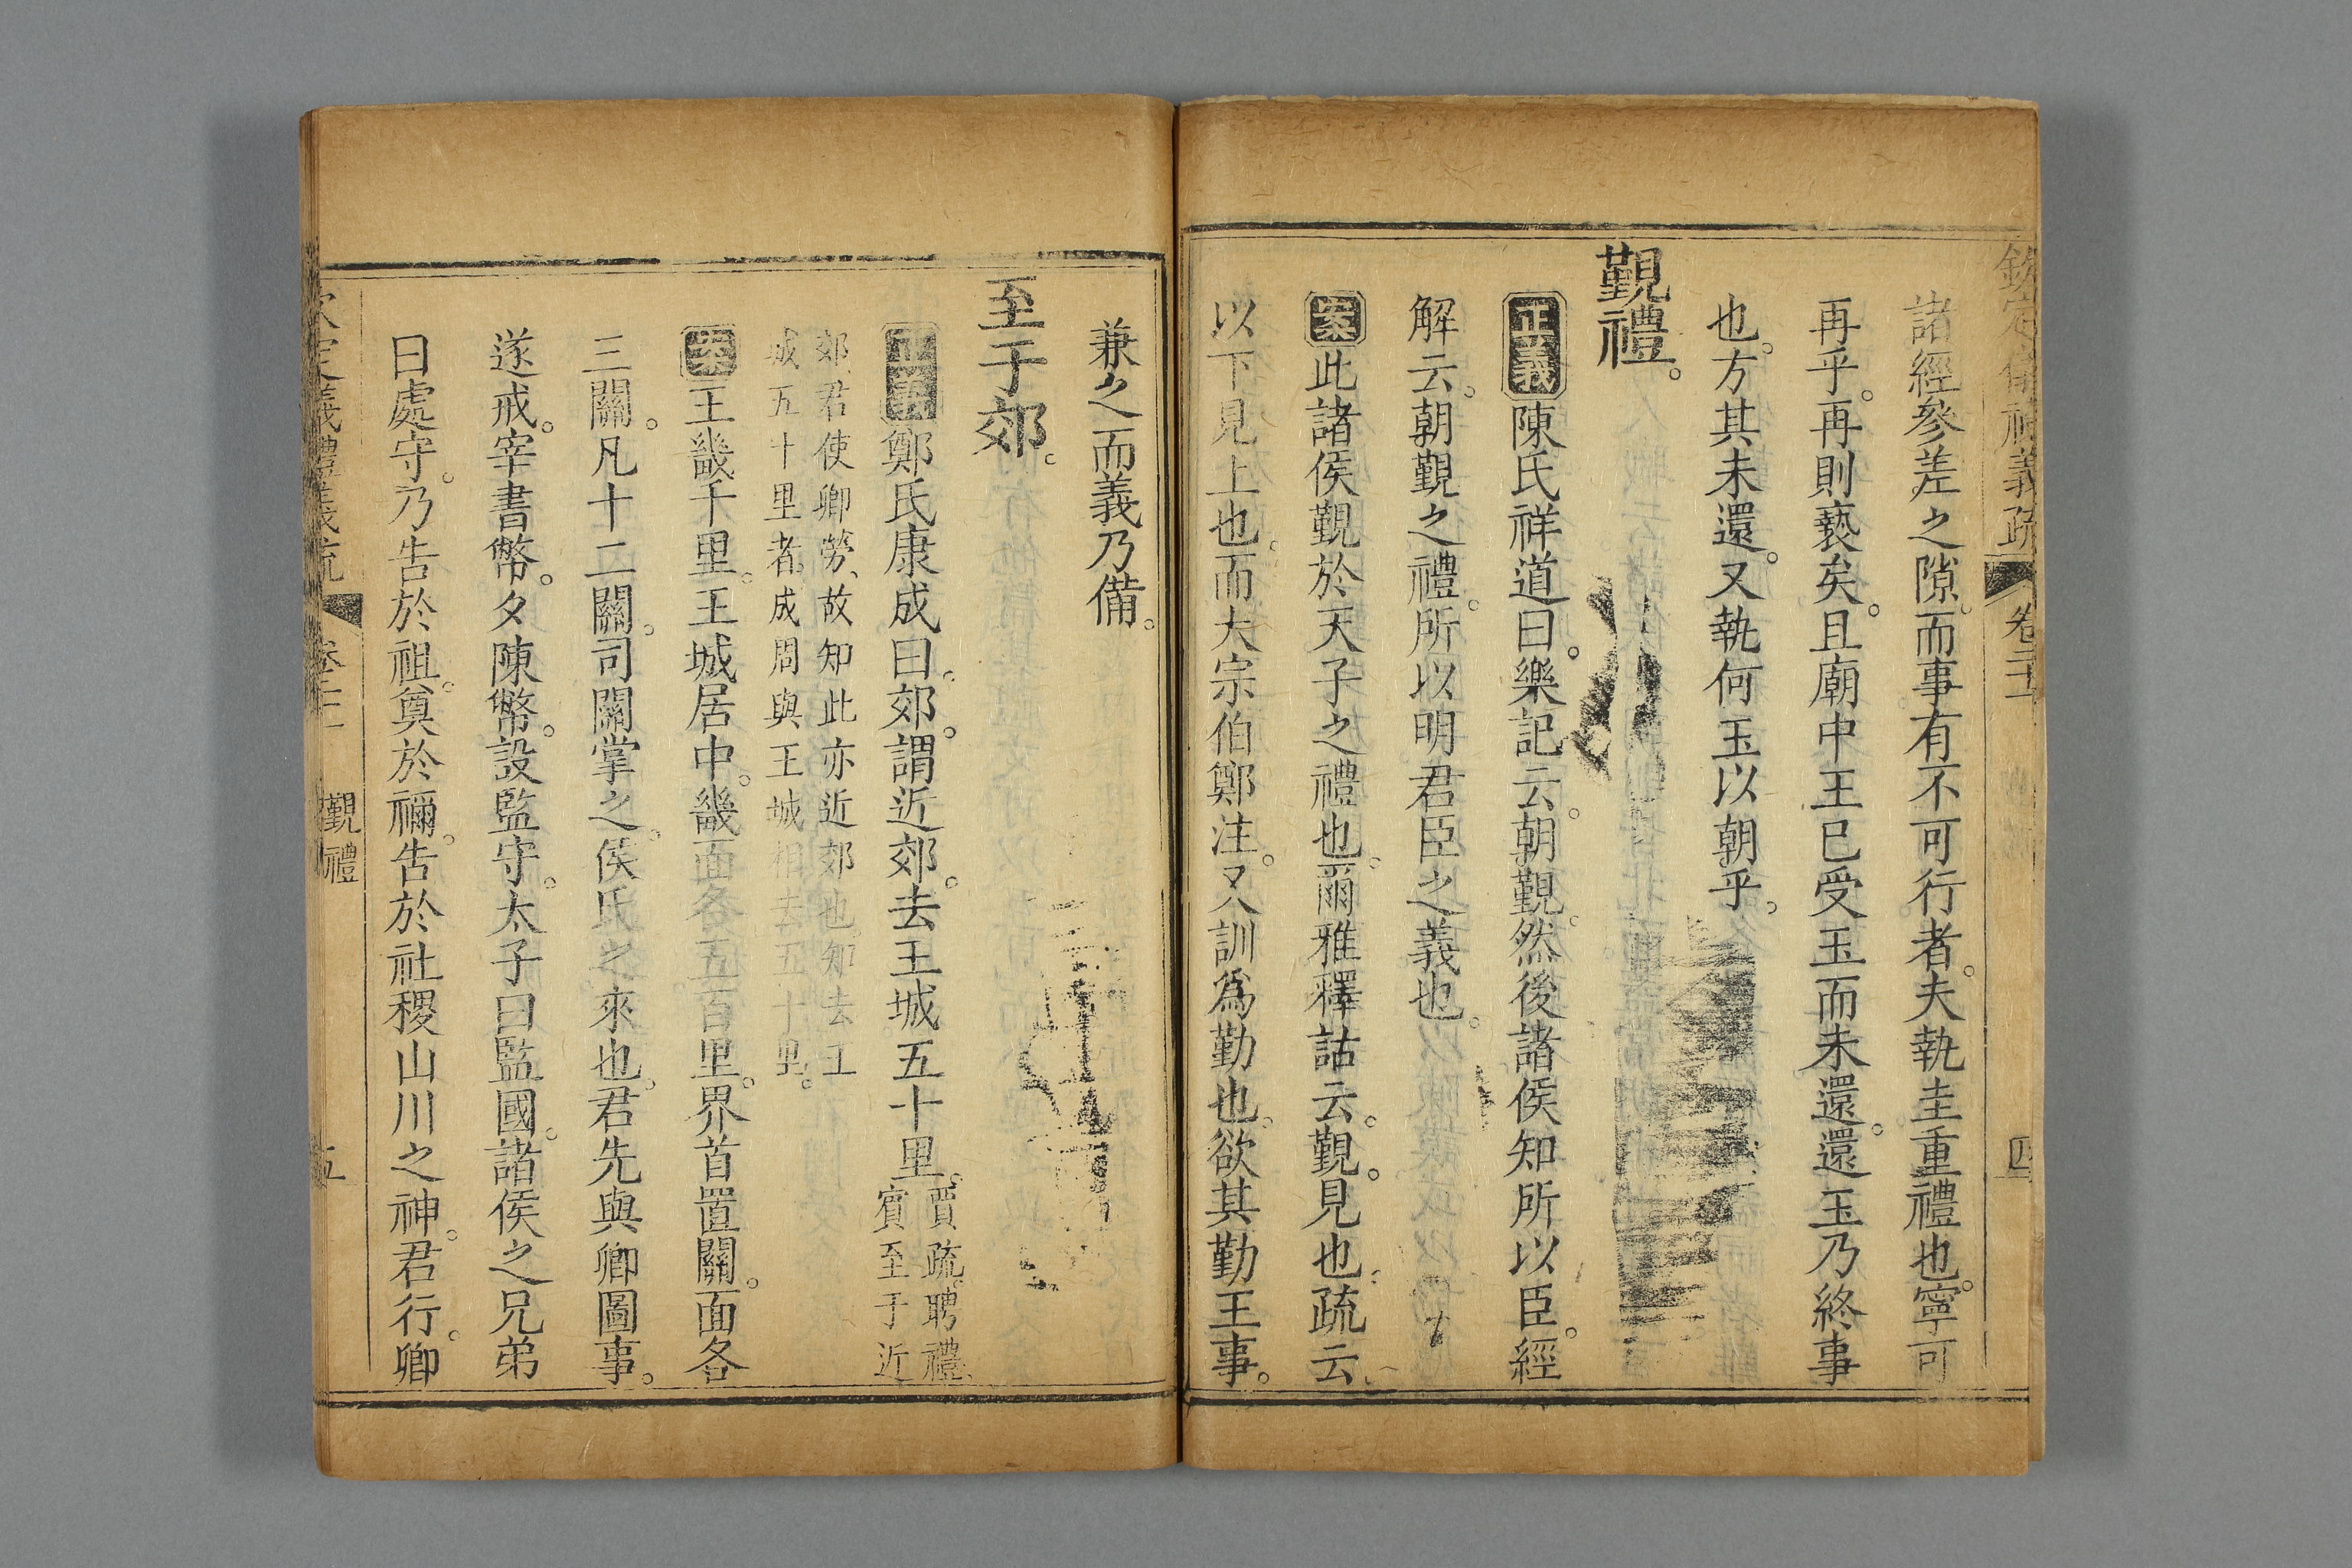 欽定儀禮義疏 卷二十一 四
諸經參差之隙。而事有不可行者。夫執圭重禮也。寧可
再乎。再則褻矣。且廟中王已受玉而未還。還玉乃終事
也。方其未還。又執何玉以朝乎。
覲禮。
正義陳氏祥道曰。樂記云。朝覲。然後諸侯知所以臣。經
解云。朝覲之禮。所以明君臣之義也。
案此諸侯覲於天子之禮也。爾雅釋詁云。覲。見也。疏云
以下見上也。而大宗伯鄭注。又訓爲勤也。欲其勤王事。
兼之而義乃備。
至于郊。
正義鄭氏康成曰。郊。謂近郊。去王城五十里。賈疏。聘禮、
賓至于近
郊、君使卿勞、故知此亦近郊也。知去王
城五十里者。成周與王城相去五十里。
案王畿千里。王城居中。畿面各五百里。界首置關。面各
三關。凡十二關。司關掌之。侯氏之來也。君先與卿圖事。
遂戒。宰書幣。夕陳幣。設監守。太子曰監國。諸侯之兄弟
曰處守。乃告於祖。奠於禰。告於社稷山川之神。君行。卿
欽定義禮義疏 覲禮 五